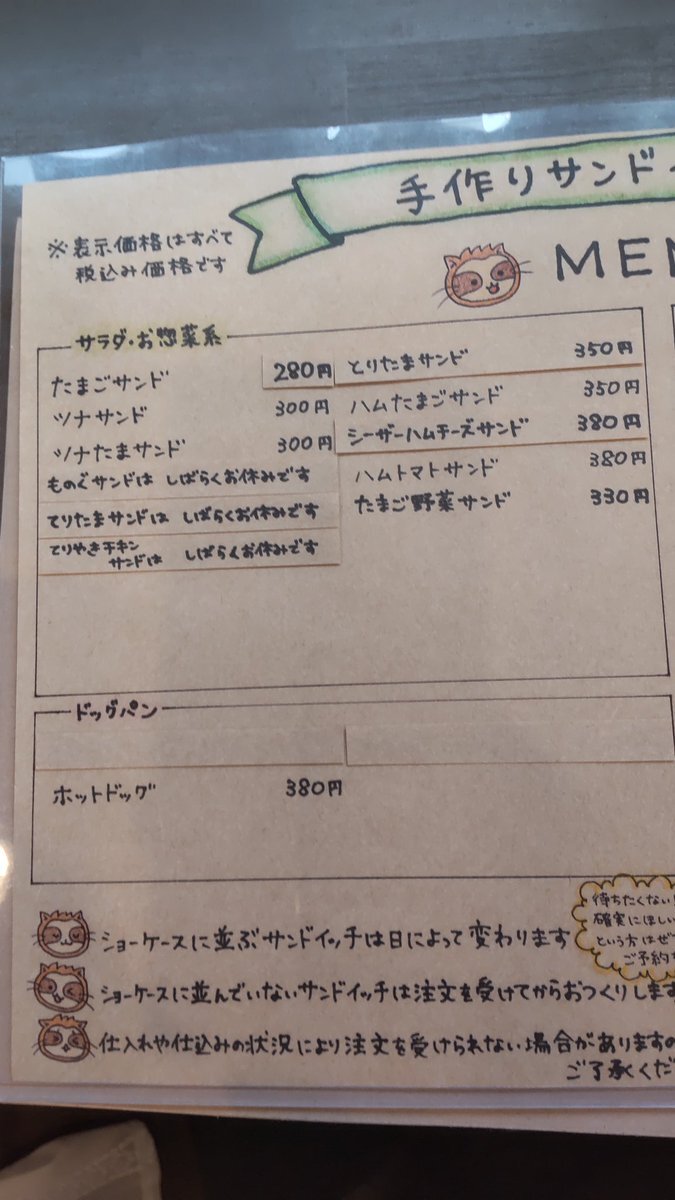 手作りサンド
※表示価格はすべて
税込み価格です
MEN
サラダ・お惣菜系
たまごサンド 280円
ツナサンド 300円
ツナたまサンド 300円
ものぐサンドは しばらくお休みです
てりたまサンドは しばらくお休みです
てりやきチキン
サンドは しばらくお休みです
とりたまサンド 350円
ハムたまごサンド 350円
シーザーハムチーズサンド 380円
ハムトマトサンド 380円
たまご野菜サンド 330円
ドッグパン
ホットドッグ 380円
待ちたくない!
確実にほしい
という方はぜ
ご予約
ショーケースに並ぶサンドイッチは日によって変わります
ショーケースに並んでいないサンドイッチは注文を受けてからおつくりします
仕入れや仕込みの状況により注文を受けられない場合がありますの
ご了承くだ